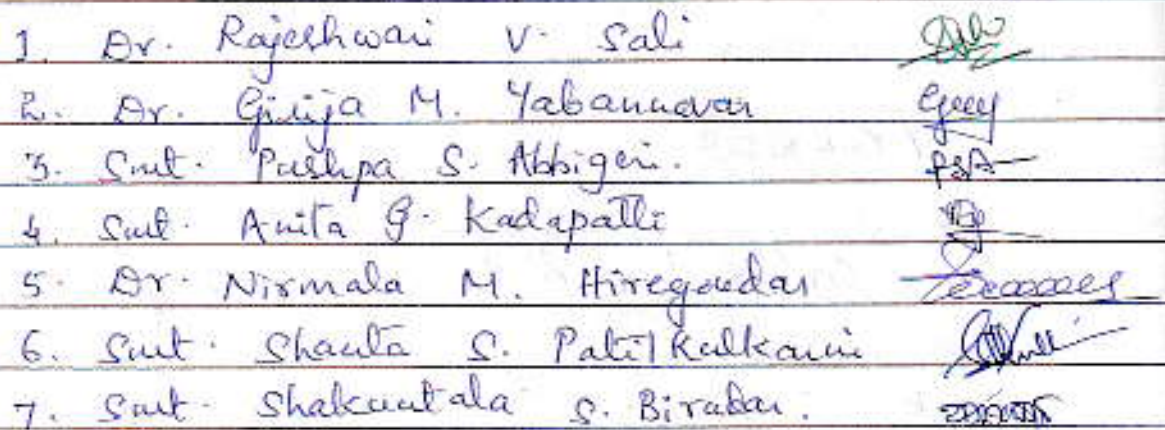 1. Dr. Rajeshwari V. Sali
2. Dr. Girija M. Yabannavar
3. Smt. Pushpa S. Abbigeri.
4. Smt. Anita G. Kadapatti
5. Dr. Nirmala M. Hiregoudar
6. Smt. Shanta S. Patil Kulkarni
7. Smt. Shakuntala S. Biradar.